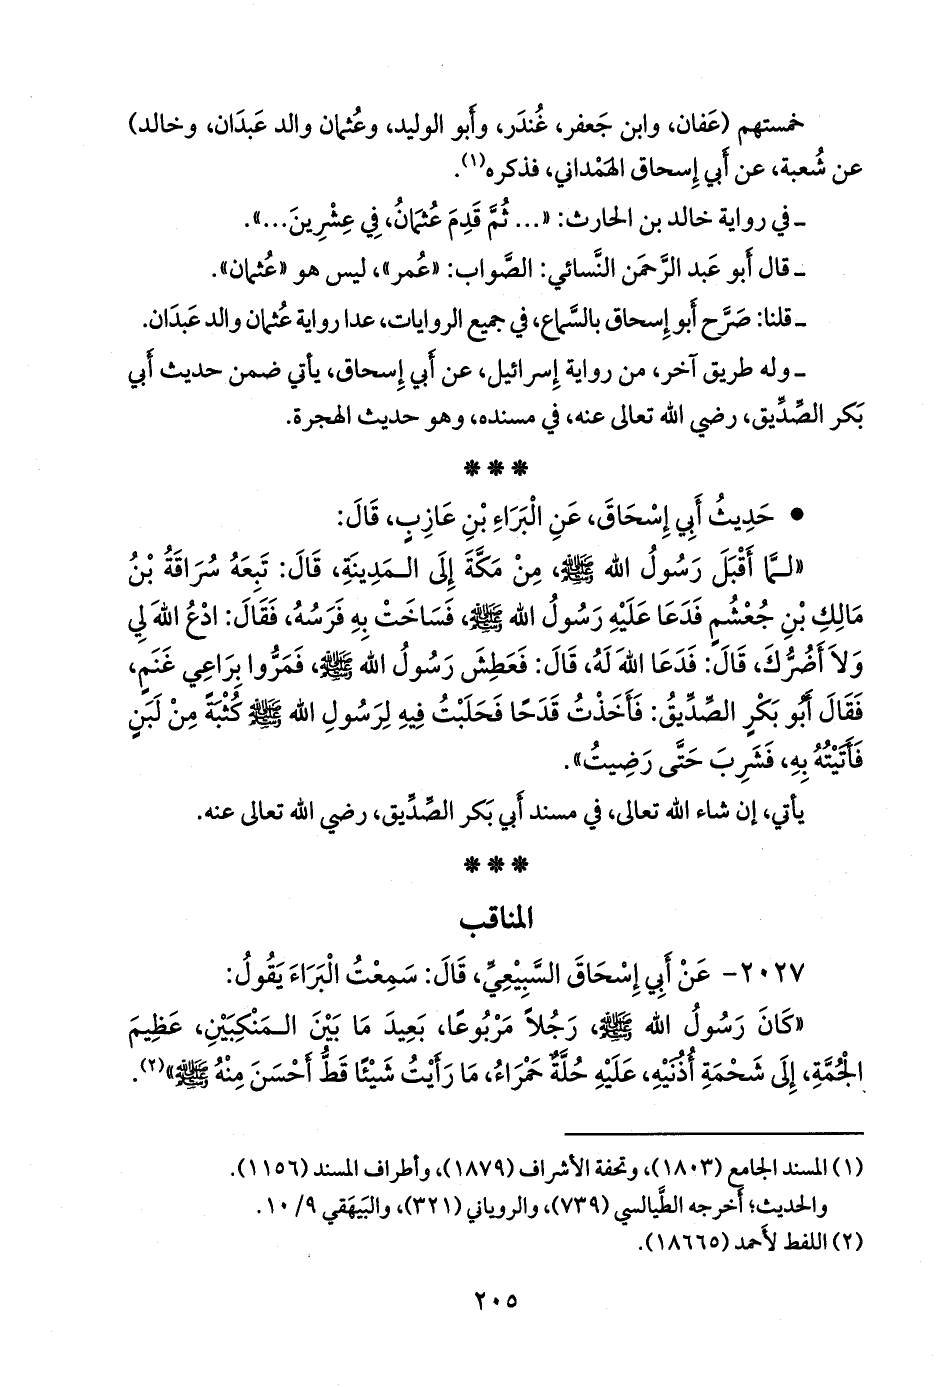 خمستهم (عَفان، وابن جَعفر، غُندَر، وأَبو الوليد، وعُثمان والد عَبدَان، وخالد)
عن شُعبة، عن أَبي إِسحاق الهَمْداني، فذكره(١).
ـ في رواية خالد بن الحارث: «... ثُمَّ قَدِمَ عُثمَانُ، فِي عِشْرِينَ...».
ـ قال أَبو عَبد الرَّحمَن النَّسائي: الصَّواب: «عُمر»، ليس هو «عُثمان».
ـ قلنا: صَرَّح أَبو إِسحاق بالسَّماع، في جميع الروايات، عدا رواية عُثمان والد عَبدَان.
ـ وله طريق آخر، من رواية إِسرائيل، عن أَبي إِسحاق، يأتي ضمن حديث أَبي
بَكر الصِّدِّيق، رضي الله تعالى عنه، في مسنده، وهو حديث الهجرة.
* * *
• حَدِيثُ أَبِي إِسْحَاقَ، عَنِ الْبَرَاءِ بْنِ عَازِبٍ، قَالَ:
«لـمَّا أَقْبَلَ رَسُولُ الله ﷺ، مِنْ مَكَّةَ إِلَى الـمَدِينَةِ، قَالَ: تَبِعَهُ سُرَاقَةُ بْنُ
مَالِكِ بْنِ جُعْشُمٍ فَدَعَا عَلَيْهِ رَسُولُ الله ﷺ، فَسَاخَتْ بِهِ فَرَسُهُ، فَقَالَ: ادْعُ اللهَ لِي
وَلاَ أَضُرُّكَ، قَالَ: فَدَعَا اللهَ لَهُ، قَالَ: فَعَطِشَ رَسُولُ الله ﷺ، فَمَرُّوا بِرَاعِي غَنَمٍ،
فَقَالَ أَبُو بَكْرٍ الصِّدِّيقُ: فَأَخَذْتُ قَدَحًا فَحَلَبْتُ فِيهِ لِرَسُولِ الله ﷺ كُثْبَةً مِنْ لَبَنٍ
فَأَتَيْتُهُ بِهِ، فَشَرِبَ حَتَّى رَضِيتُ».
يأتي، إن شاء الله تعالى، في مسند أَبي بَكر الصِّدِّيق، رضي الله تعالى عنه.
* * *
المناقب
٢٠٢٧- عَنْ أَبِي إِسْحَاقَ السَّبِيعِيِّ، قَالَ: سَمِعْتُ الْبَرَاءَ يَقُولُ:
«كَانَ رَسُولُ الله ﷺ، رَجُلاً مَرْبُوعًا، بَعِيدَ مَا بَيْنَ الـمَنْكِبَيْنِ، عَظِيمَ
الْجُمَّةِ، إِلَى شَحْمَةِ أُذُنَيْهِ، عَلَيْهِ حُلَّةٌ حَمْرَاءُ، مَا رَأَيْتُ شَيْئًا قَطُّ أَحْسَنَ مِنْهُ ﷺ»(٢).
(١) المسند الجامع (١٨٠٣)، وتحفة الأشراف (١٨٧٩)، وأطراف المسند (١١٥٦).
والحديث؛ أَخرجه الطَّيالسي (٧٣٩)، والروياني (٣٢١)، والبَيهَقي ٩/ ١٠.
(٢) اللفظ لأحمد (١٨٦٦٥).
٢٠٥